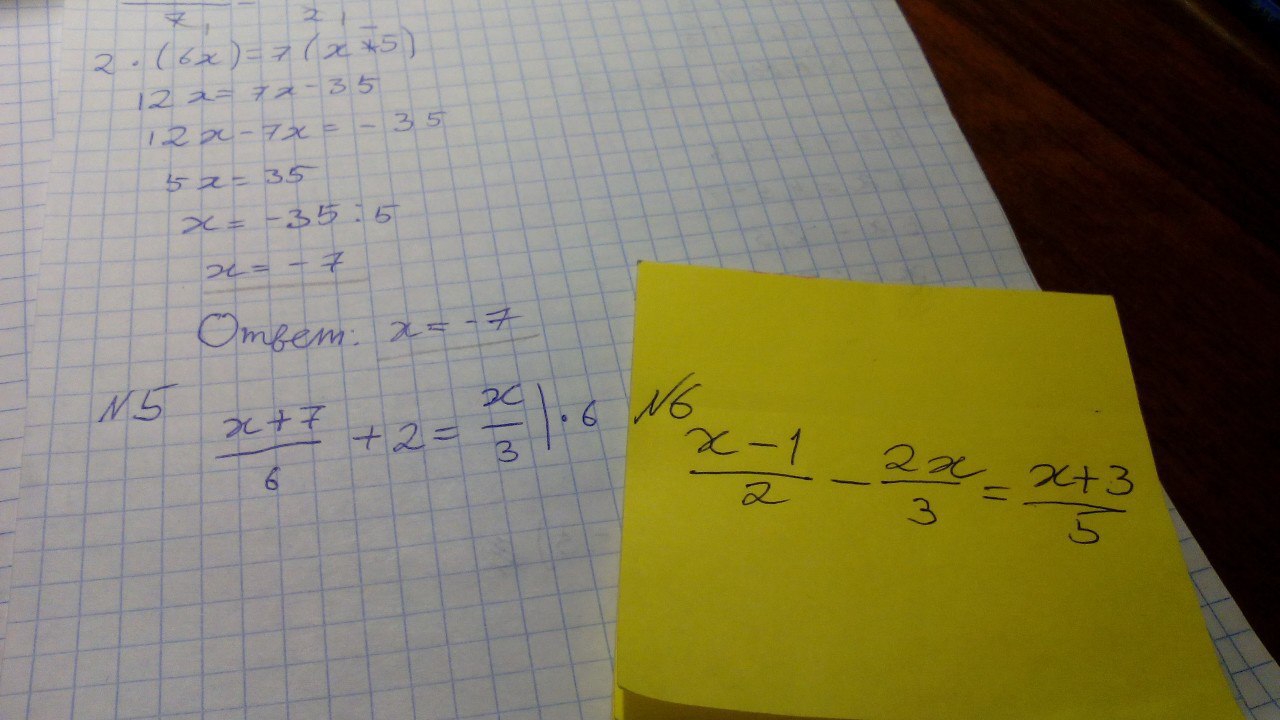 7 2
2 · (6x) = 7 (x - 5)
12x = 7x - 35
12x - 7x = - 35
5x = 35
x = -35 : 5
x = - 7
Ответ: x = -7
N5 (x+7)/6 + 2 = x/3 | · 6
N6
(x-1)/2 - 2x/3 = (x+3)/5